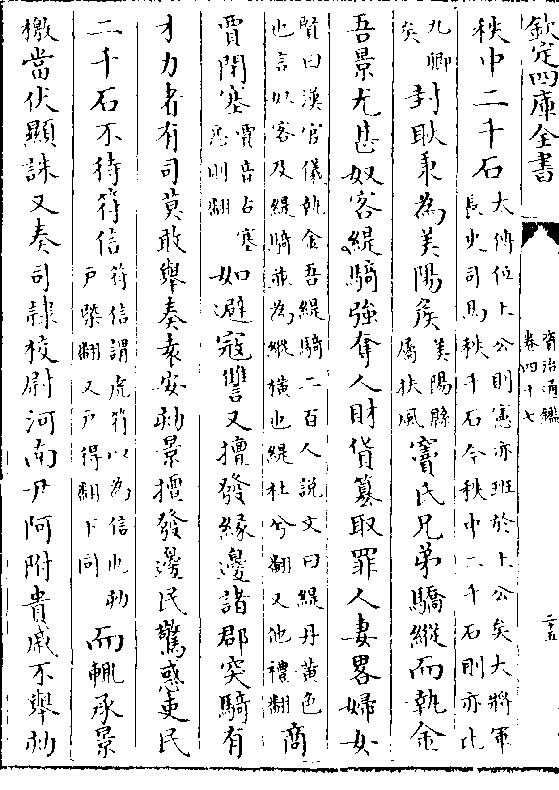 欽定四庫全書
資治通鑑
卷四十七
二十五
秩中二千石大傅位上公則憲亦班於上公矣大將軍
長史司馬秩千石今秩中二千石則亦比
九卿
矣封耿秉為美陽侯美陽縣
屬扶風竇氏兄弟驕縱而執金
吾景尤甚奴客緹騎強奪人財貨篡取罪人妻畧婦女
賢曰漢官儀執金吾緹騎二百人説文曰緹丹黄色
也言奴客及緹騎並為縱横也緹杜兮翻又他禮翻商
賈閉塞賈音古塞
悉則翻如避寇讐又擅發緣邊諸郡突騎有
才力者有司莫敢舉奏袁安劾景擅發邊民驚惑吏民
二千石不待符信符信謂虎符以為信也劾
戸槩翻又戸得翻下同而輒承景
檄當伏顯誅又奏司隷校尉河南尹阿附貴戚不舉劾